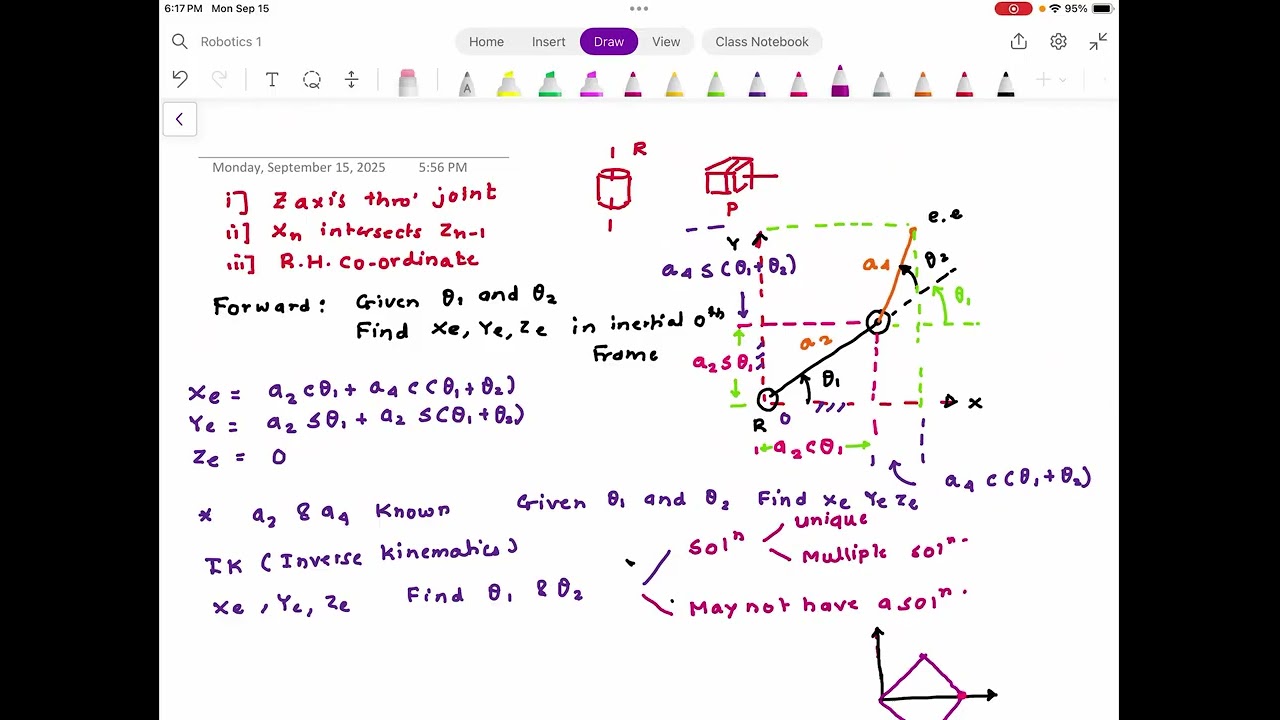 6:17 PM Mon Sep 15
95%
Robotics 1
Home Insert Draw View Class Notebook
Monday, September 15, 2025 5:56 PM
i] Z axis thro' joint
ii] Xn intersects Zn-1
iii] R.H. co-ordinate
R
P
Forward: Given θ1 and θ2
Find Xe, Ye, Ze in inertial 0th
Frame
Xe = a2 cθ1 + a4 c(θ1+θ2)
Ye = a2 sθ1 + a2 s(θ1+θ2)
Ze = 0
e.e
Y
a4 s(θ1+θ2)
a4
θ2
θ1
a2
a2 sθ1
θ1
R
0
X
a2 cθ1
a4 c(θ1+θ2)
* a2 & a4 Known Given θ1 and θ2 Find Xe Ye Ze
IK (Inverse Kinematics)
Xe, Ye, Ze Find θ1 & θ2
Soln
unique
Multiple soln.
May not have a soln.